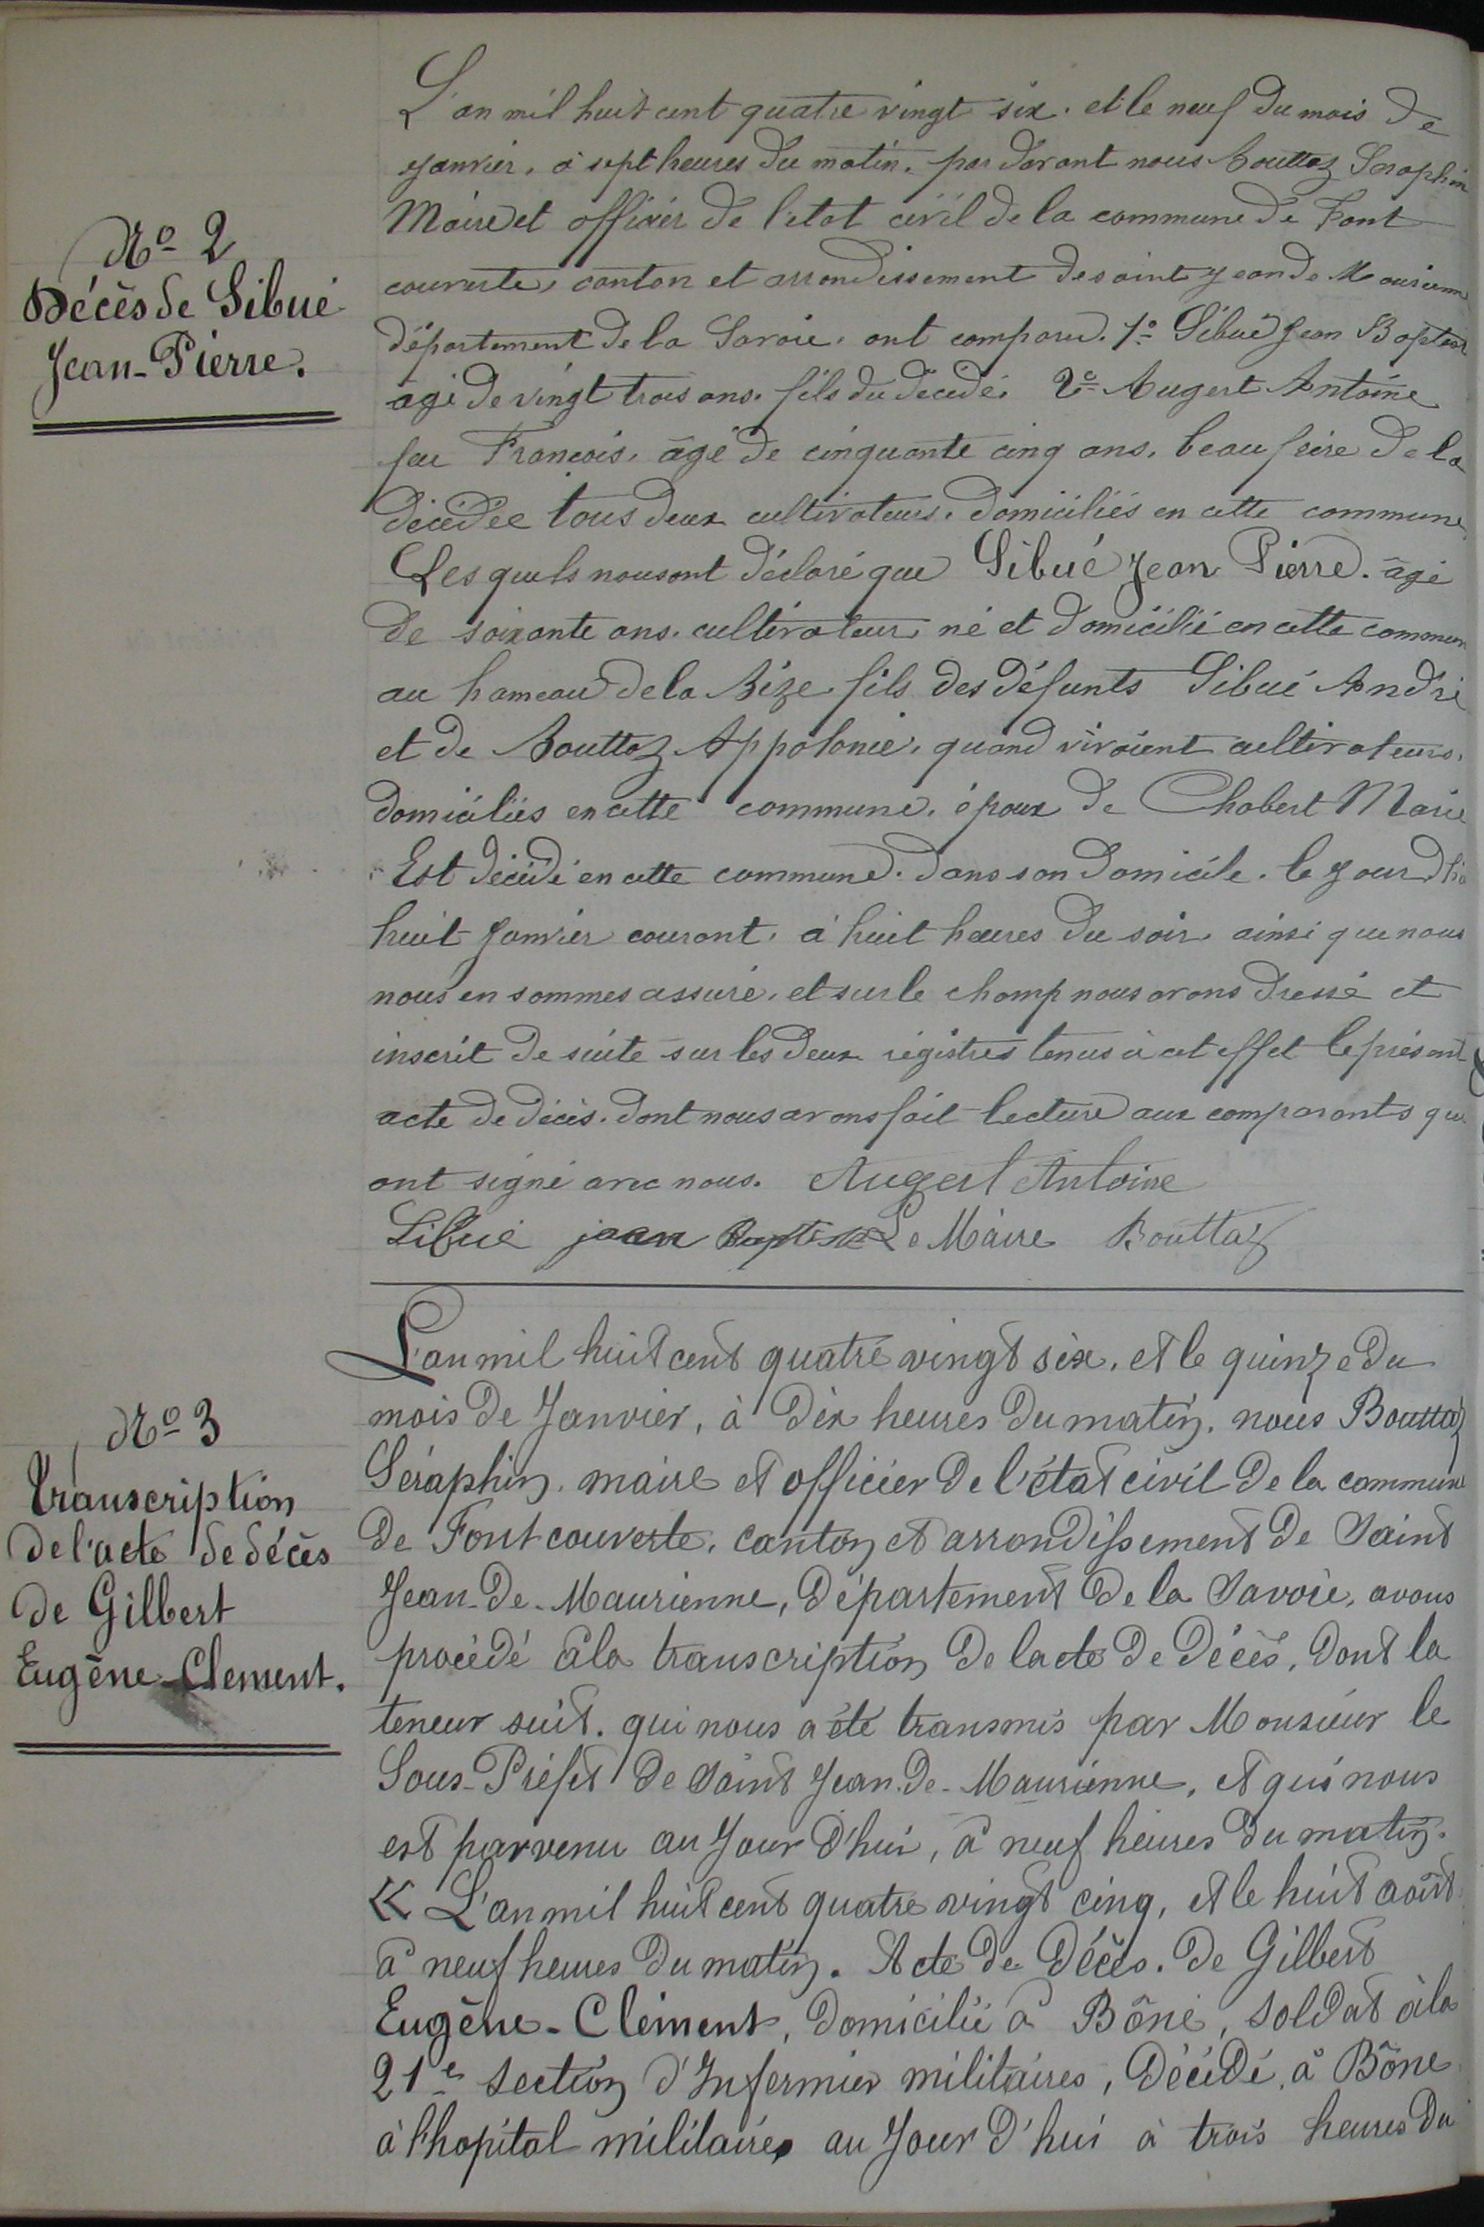 Nº 2
Décès de Sibué
Jean-Pierre.
L'an mil huit cent quatre vingt six. et le neuf du mois de
janvier, à sept heures du matin, par devant nous Bouttaz Séraphin
Maire et officier de l'état civil de la commune de Font
couverte, canton et arrondissement de saint Jean de Maurienne
département de la Savoie, ont comparu. 1º Sibué Jean Baptiste
âgé de vingt trois ans. fils du décédé. 2º Augert Antoine
feu François, âgé de cinquante cinq ans, beau frère de la
décédée tous deux cultivateurs, domiciliés en cette commune.
Lesquels nous ont déclaré que Sibué Jean Pierre. âgé
de soixante ans. cultivateur, né et domicilié en cette commune
au hameau de la Bize fils des défunts Sibué André
et de Bouttaz Appolonie, quand vivaient cultivateurs,
domiciliés en cette commune, époux de Chabert Marie
Est décédé en cette commune. dans son domicile. le jour d'hi
huit janvier courant, à huit heures du soir ainsi que nous
nous en sommes assuré, et sur le champ nous avons dressé et
inscrit de suite sur les deux régistres tenus à cet effet le présent
acte de décès. dont nous avons fait lecture aux comparants qui
ont signé avec nous. Augert Antoine
Sibué jean Baptiste Le Maire Bouttaz
Nº 3
Transcription
de l'acte de décès
de Gilbert
Eugène-Clement.
L'an mil huit cent quatre vingt six, et le quinze du
mois de Janvier, à dix heures du matin, nous Bouttaz
Séraphin, maire et officier de l'état civil de la commune
de Fontcouverte, canton et arrondissement de Saint
Jean-de-Maurienne, Département de la Savoie, avons
procédé à la transcription de lacte de Décès, dont la
teneur suit. qui nous a été transmis par Monsieur le
Sous-Préfet de Saint Jean-de-Maurienne, et qui nous
est parvenu au Jour d'hui, à neuf heures du matin.
« L'an mil huit cent quatre vingt cinq, et le huit août
à neuf heures du matin. Acte de Décès. de Gilbert
Eugène-Clément, domicilié à Bône, soldat à la
21e section d'Infermier militaires, Décédé, à Bône
à l'hopital militaire, au Jour d'hui à trois heures du